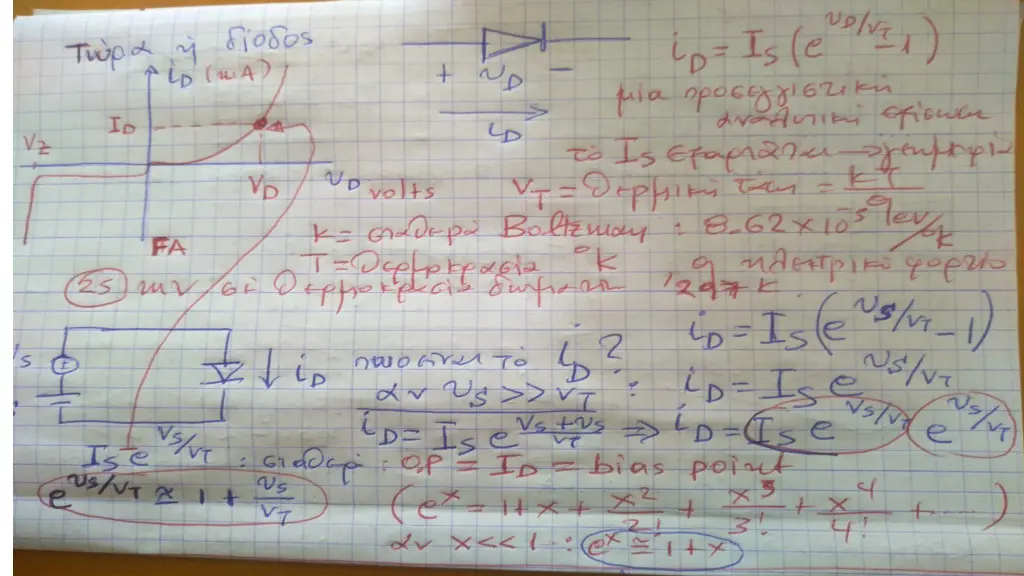 Τώρα η δίοδος
i_D (mA)
I_D
V_Z
V_D
υ_D volts
FA
+ υ_D −
i_D
i_D = I_S (e^{υ_D/V_T} − 1)
μία προσεγγιστική
αναλυτική εξίσωση
το I_S εξαρτάται →
V_T = Θερμική τάση = kT/q
k = σταθερά Boltzman : 8.62 × 10^{-5} eV/°K
T = Θερμοκρασία °K q ηλεκτρικό φορτίο
25 mV σε θερμοκρασία δωματίου, 297 K.
i_D = I_S (e^{υ_S/V_T} − 1)
i_D
ποιο είναι το i_D ?
αν υ_S >> V_T : i_D = I_S e^{υ_S/V_T}
i_D = I_S e^{(V_S + υ_S)/V_T} ⇒ i_D = I_S e^{V_S/V_T} e^{υ_S/V_T}
I_S e^{V_S/V_T} : σταθερά : OP = I_D = bias point
e^{υ_S/V_T} ≅ 1 + υ_S/V_T
(e^x = 1 + x + x^2/2! + x^3/3! + x^4/4! + ....)
αν x << 1 : e^x ≅ 1 + x